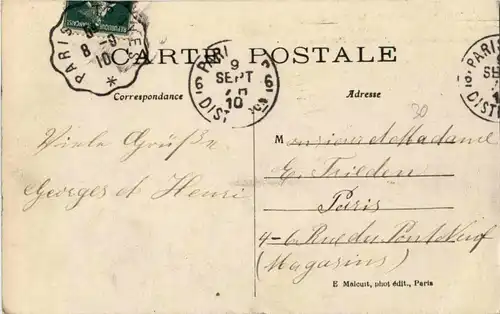 CARTE POSTALE
PARIS
8 -9
10
PARI
9
SEPT
10
DIST
SE
DIST
Correspondance
Adresse
20
Viele Grüße
Georges et Henri
Monsieur et Madame
E. Frieden
Paris
4-6 Rue du Pont Neuf
(Magasins)
E Malcuit, phot édit., Paris